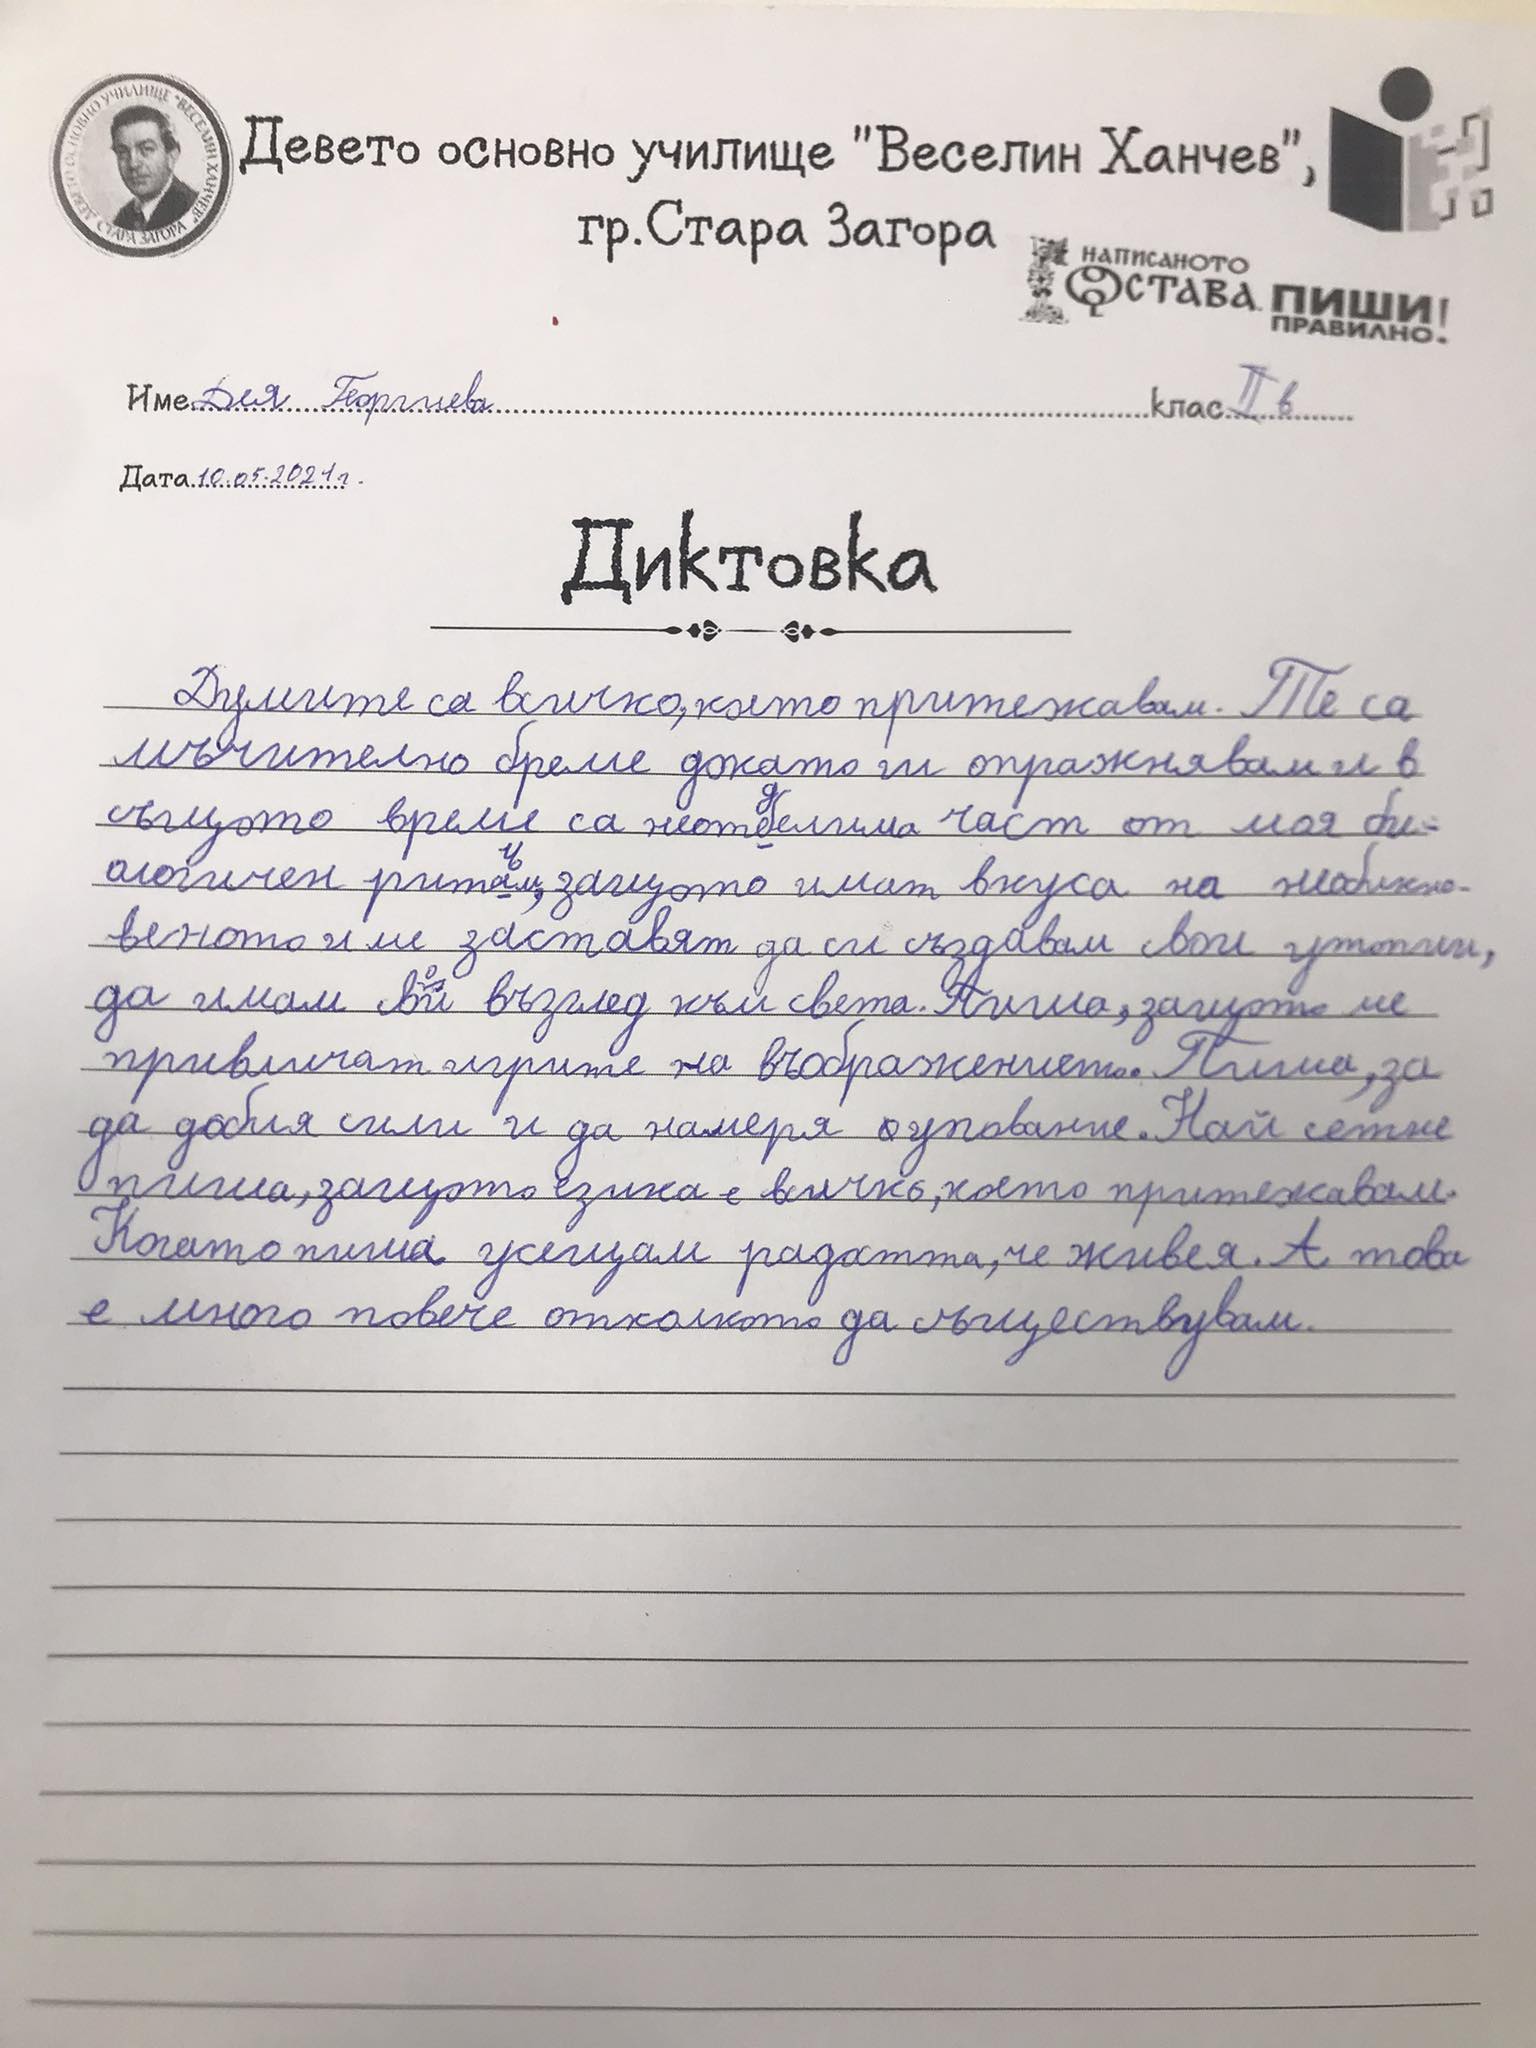 ДЕВЕТО ОСНОВНО УЧИЛИЩЕ "ВЕСЕЛИН ХАНЧЕВ" СТАРА ЗАГОРА
Девето основно училище "Веселин Ханчев",
гр.Стара Загора
НАПИСАНОТО
ОСТАВА. ПИШИ
ПРАВИЛНО!
Име Дея Георгиева клас II в
Дата 10.05.2021г.
Диктовка
Думите са всичко, което притежавам. Те са
мъчително бреме докато ги опражнявам и в
същото време са неотделима част от моя би-
ологичен ритъм, защото имат вкуса на необикно-
веното и ме заставят да си създавам свои утопии,
да имам свой възглед към света. Пиша, защото ме
привличат игрите на въображението. Пиша, за
да добия сили и да намеря упование. Най сетне
пиша, защото езика е всичко, което притежавам.
Когато пиша усещам радостта, че живея. А това
е много повече отколкото да съществувам.